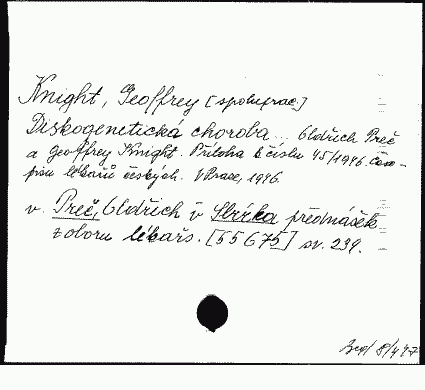 Knight, Geoffrey [spoluprac.]
Diskogenetická choroba... Oldřich Preč
a Geoffrey Knight. Příloha k číslu 45/1946. Časo-
pisu lékařů českých. V Praze, 1946.
v. Preč, Oldřich v Sbírka přednášek
z oboru lékařs. [55675] sv. 239.
8/4 47